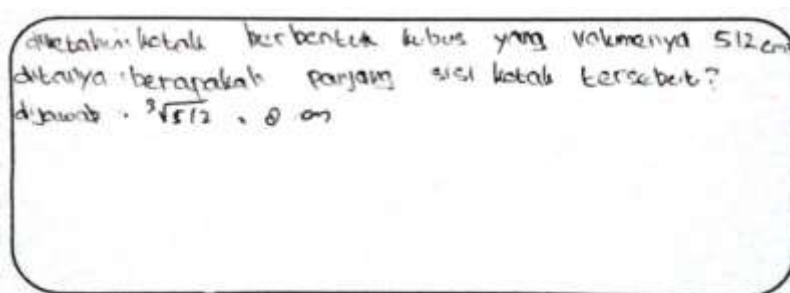 diketahui: kotak berbentuk kubus yang volumenya 512 cm
ditanya: berapakah panjang sisi kotak tersebut?
dijawab : ³√512 = 8 cm